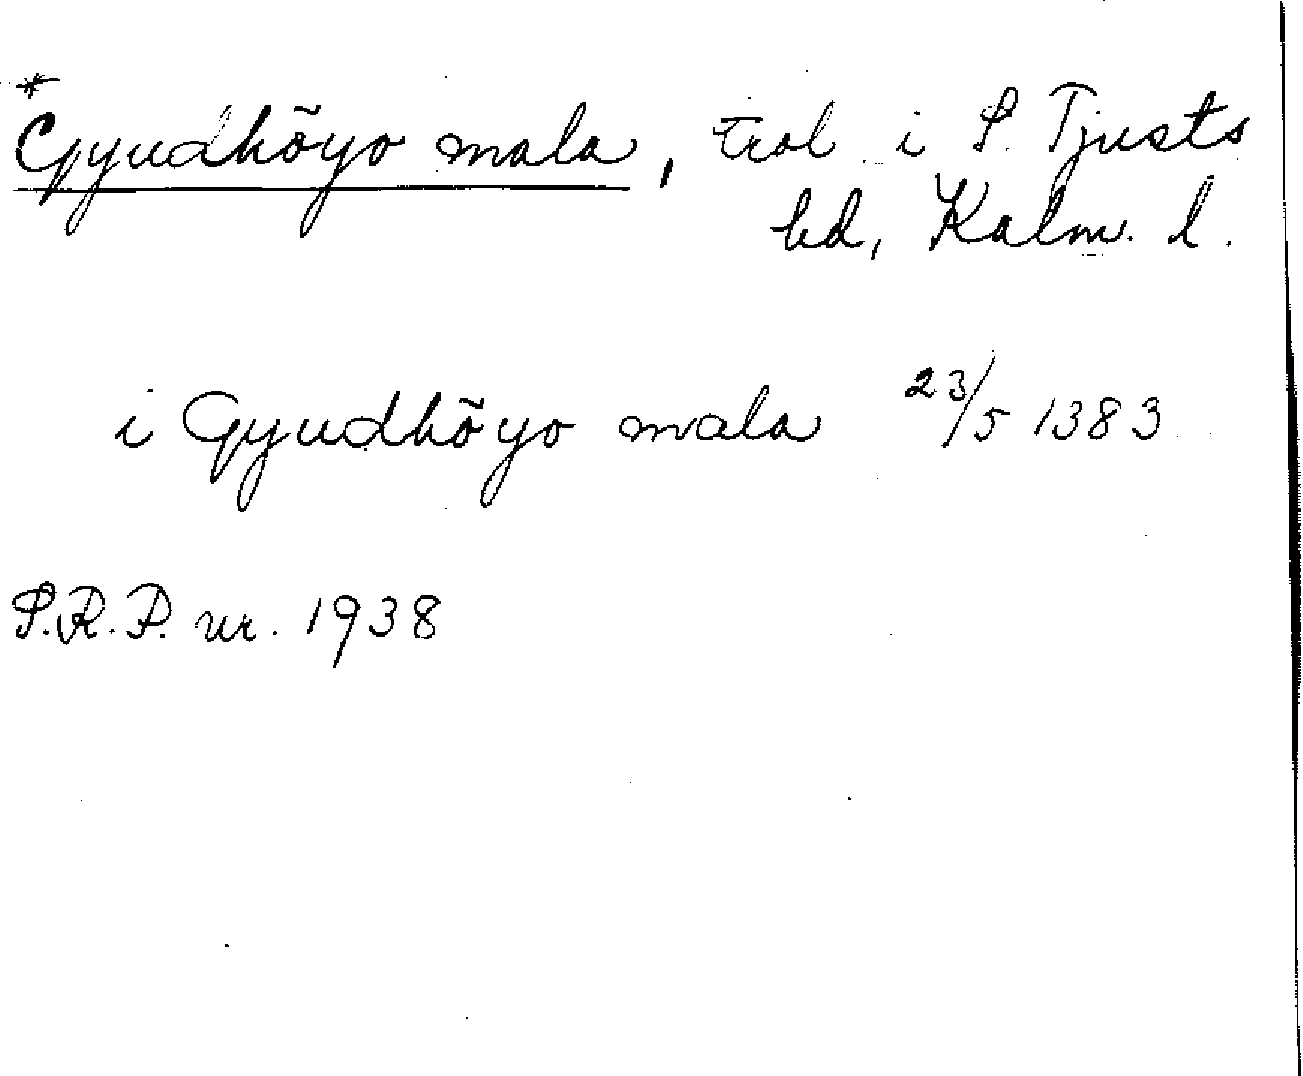 *
Gyudhöyo mala, trol. i S. Tjusts
hd, Kalm. l.
i Gyudhöyo mala 23/5 1383
S.R.P. nr. 1938